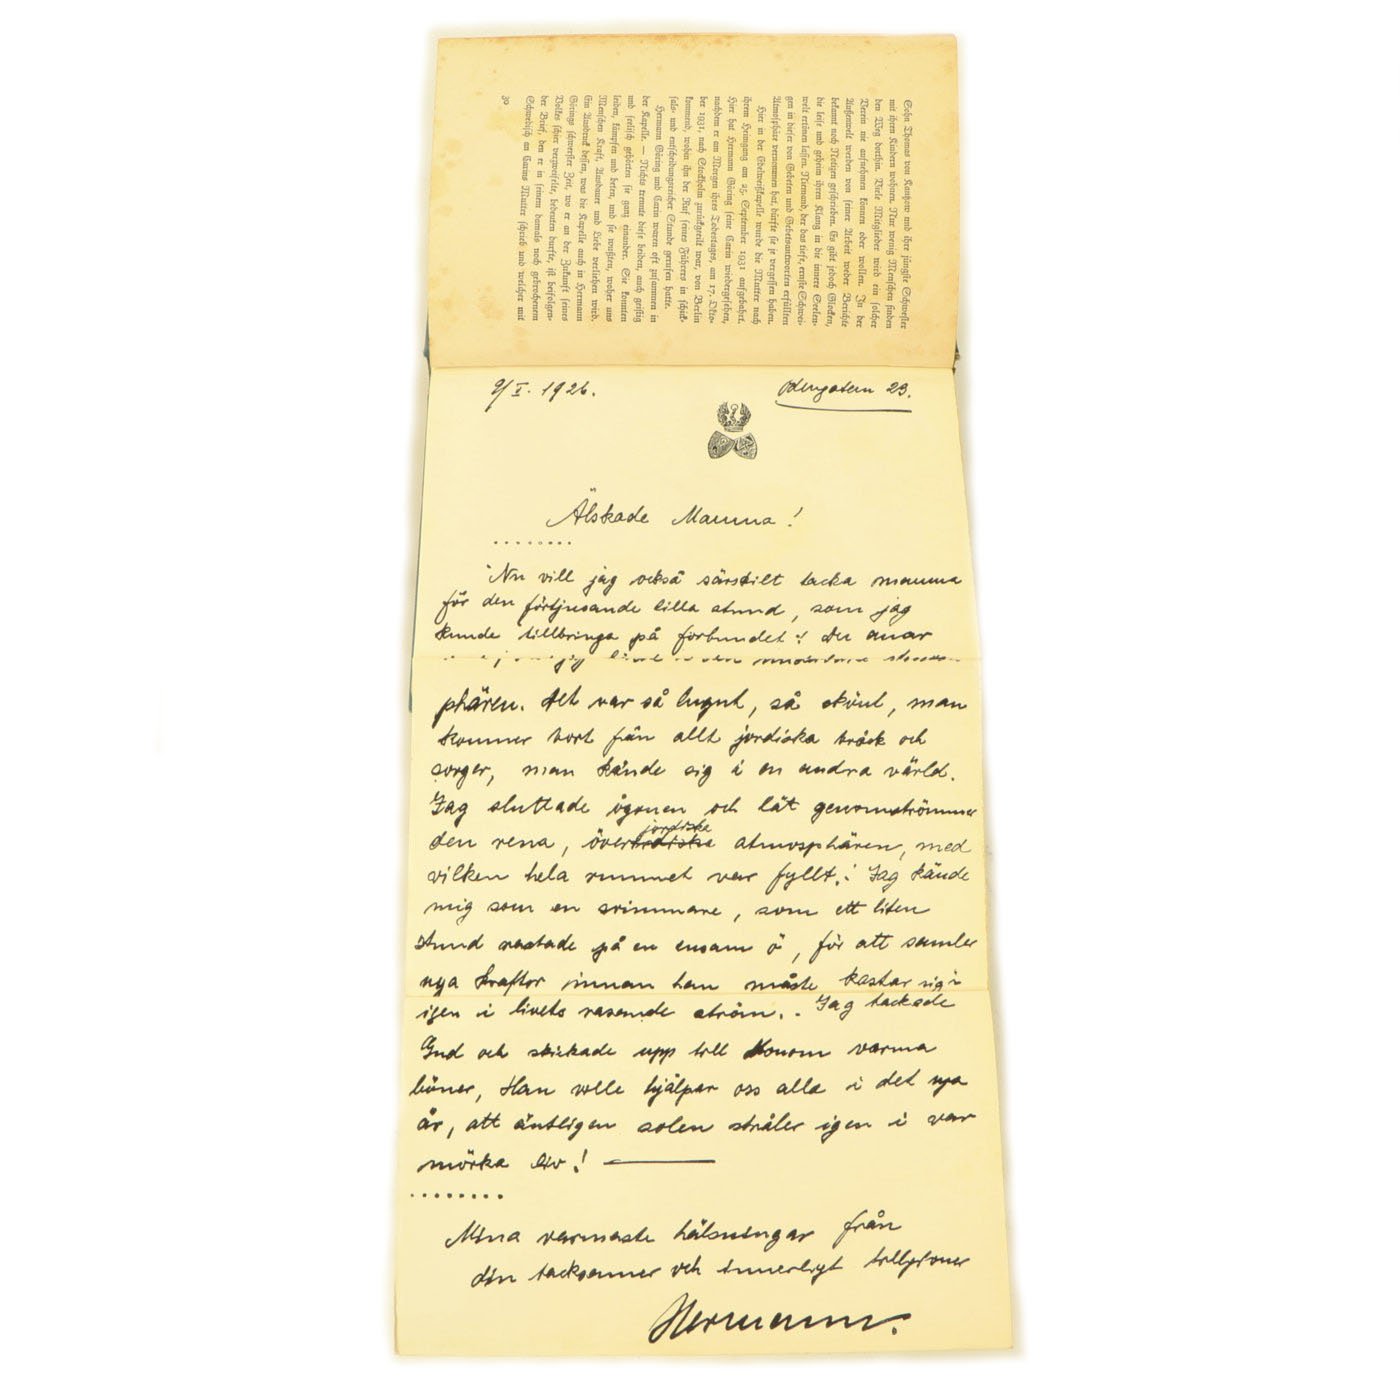 Sohn Thomas von Kantzow und ihre jüngste Schwester
mit ihren Kindern wohnen. Nur wenig Menschen finden
den Weg dorthin. Viele Mitglieder wird ein solcher
Verein nie aufnehmen können oder wollen. In der
Außenwelt werden von seiner Arbeit weder Berichte
bekannt noch Notizen geschrieben. Es gibt jedoch Glocken,
die leise und geheim ihren Klang in die innere Seelen-
welt ertönen lassen. Niemand, der das tiefe, ernste Schwei-
gen in dieser von Gebeten und Gebetsantworten erfüllten
Atmosphäre vernommen hat, dürfte sie je vergessen haben.
Hier in der Edelweißkapelle wurde die Mutter nach
ihrem Heimgang am 25. September 1931 aufgebahrt.
Hier hat Hermann Göring seine Carin wiedergesehen,
nachdem er am Morgen ihres Todestages, am 17. Okto-
ber 1931, nach Stockholm zurückgeeilt war, von Berlin
kommend, wohin ihn der Ruf seines Führers in schick-
sals- und entscheidungsreicher Stunde gerufen hatte.
Hermann Göring und Carin waren oft zusammen in
der Kapelle. — Nichts trennte diese beiden, auch geistig
und seelisch gehörten sie ganz einander. Sie konnten
leiden, kämpfen und beten, und sie wußten, woher uns
Menschen Kraft, Ausdauer und Liebe verliehen wird.
Ein Ausdruck dessen, was die Kapelle auch in Hermann
Görings schwerster Zeit, wo er an der Zukunft seines
Volkes schier verzweifelte, bedeuten durfte, ist beifolgen-
der Brief, den er in seinem damals noch gebrochenem
Schwedisch an Carins Mutter schrieb und welcher mit
30
9/I. 1926. Odengatan 23.
Älskade Mamma!
........
Nu vill jag också särskilt tacka mamma
för den förtjusande lilla stund, som jag
kunde tillbringa på förbundet! Du anar
phären. Det var så lugnt, så skönt, man
kommer bort från allt jordiska bråck och
sorger, man kände sig i en andra värld.
Jag sluttade ögonen och lät genomströmmer
den rena, överjordiska atmosphären, med
vilken hela rummet var fyllt.! Jag kände
mig som en srimmare, som ett liten
stund rastade på en ensam ö, för att samler
nya krafter innan han måste kastar sig i
igen i livets rasende ström.. Jag tackade
Gud och skickade upp till Honom varma
böner, Han ville hjälper oss alla i det nya
år, att äntligen solen stråler igen i var
mörka liv! —
........
Mina varmaste hälsningar från
din tacksamer och innerligt tillgivner
Hermann.